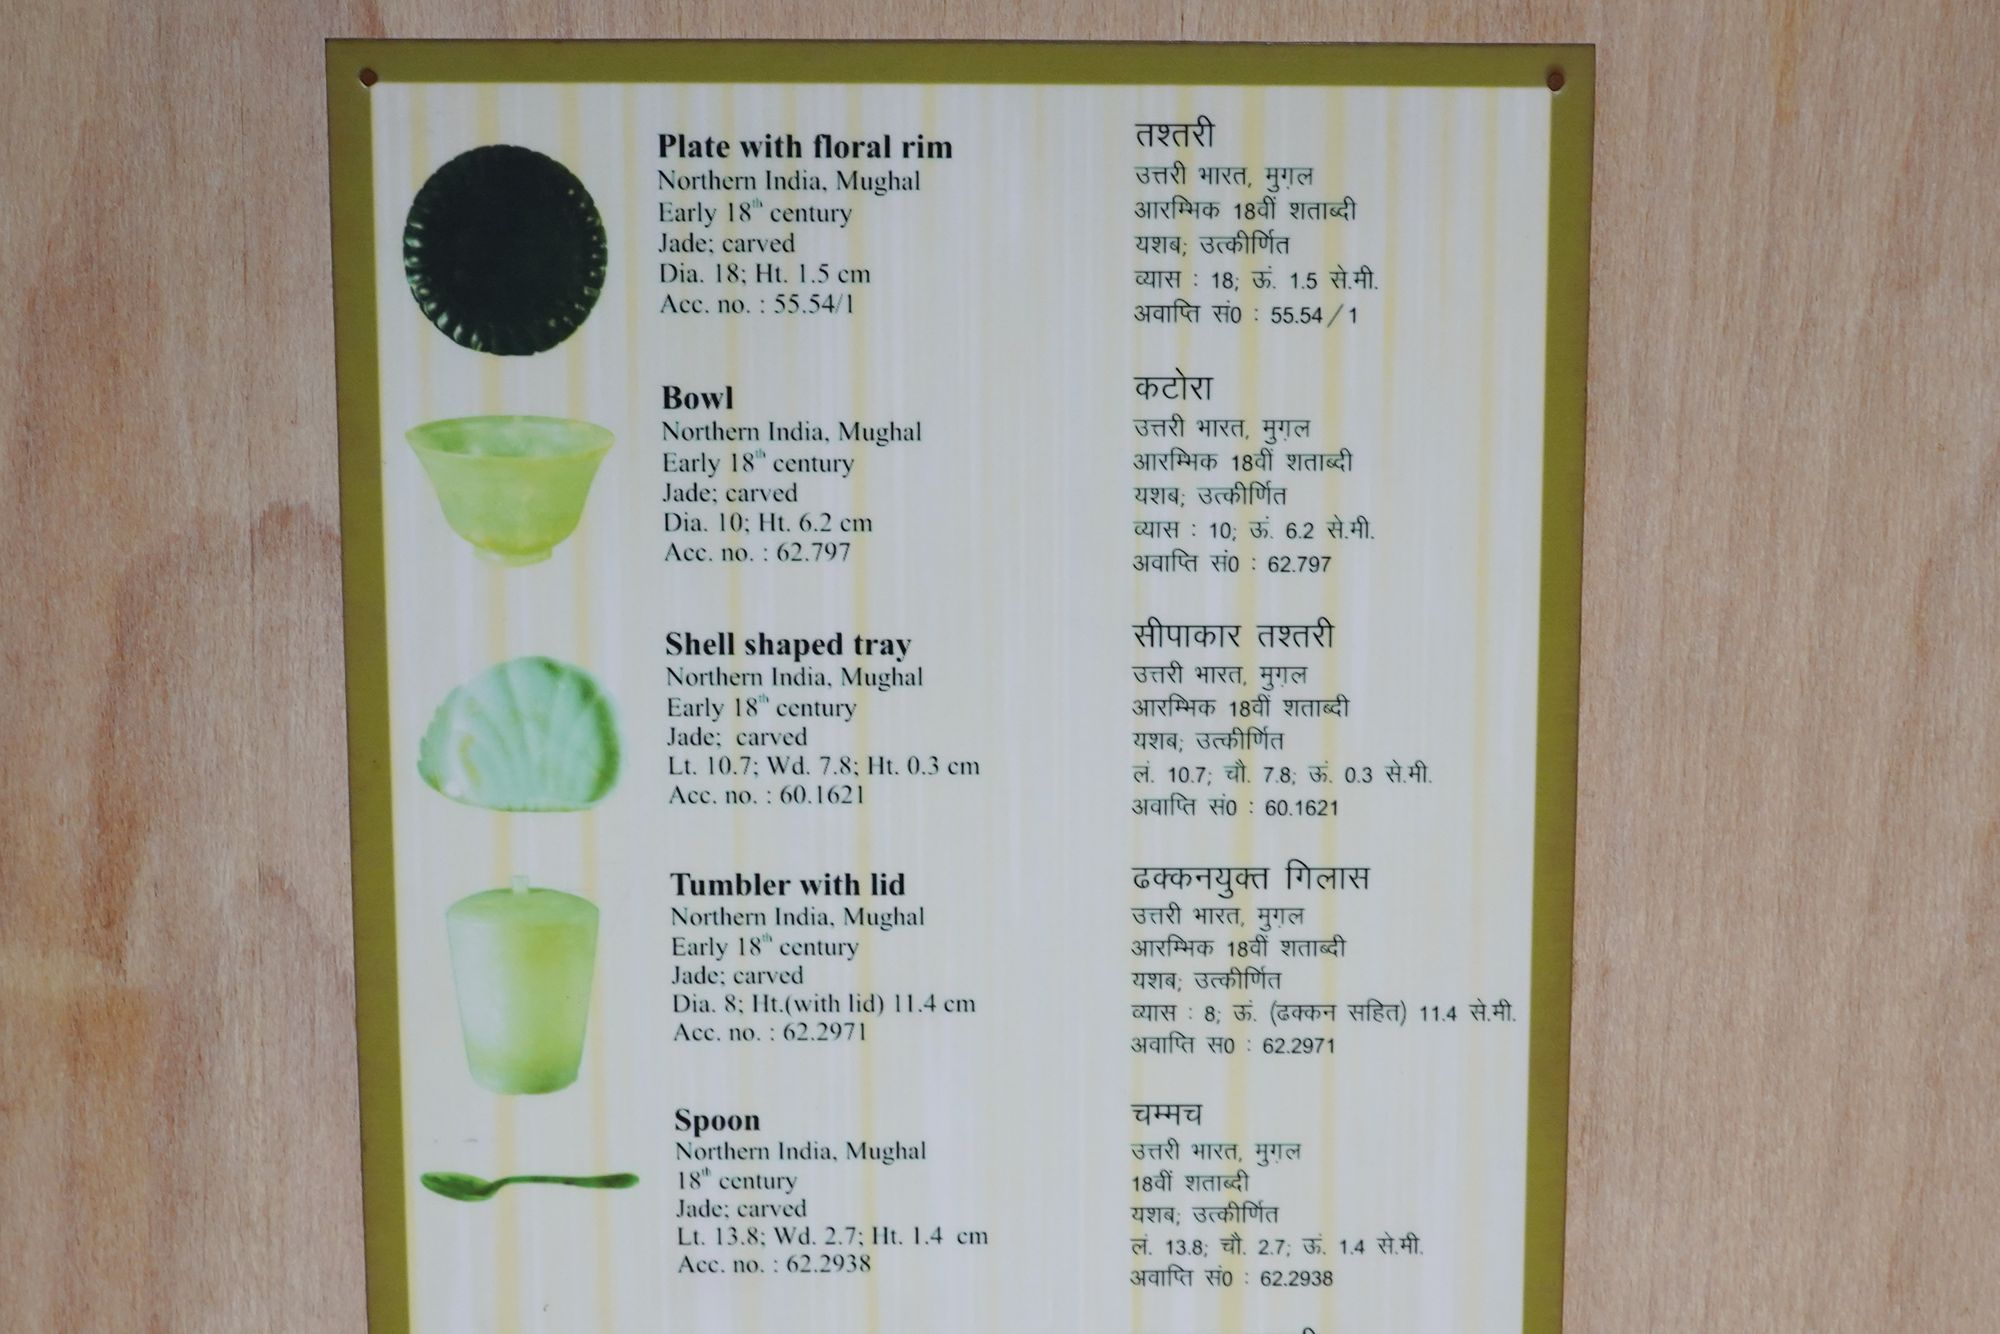 Plate with floral rim
Northern India, Mughal
Early 18th century
Jade; carved
Dia. 18; Ht. 1.5 cm
Acc. no. : 55.54/1
तश्तरी
उत्तरी भारत, मुग़ल
आरम्भिक 18वीं शताब्दी
यशब; उत्कीर्णित
व्यास : 18; ऊं. 1.5 से.मी.
अवाप्ति सं0 : 55.54/1
Bowl
Northern India, Mughal
Early 18th century
Jade; carved
Dia. 10; Ht. 6.2 cm
Acc. no. : 62.797
कटोरा
उत्तरी भारत, मुग़ल
आरम्भिक 18वीं शताब्दी
यशब; उत्कीर्णित
व्यास : 10; ऊं. 6.2 से.मी.
अवाप्ति सं0 : 62.797
Shell shaped tray
Northern India, Mughal
Early 18th century
Jade; carved
Lt. 10.7; Wd. 7.8; Ht. 0.3 cm
Acc. no. : 60.1621
सीपाकार तश्तरी
उत्तरी भारत, मुग़ल
आरम्भिक 18वीं शताब्दी
यशब; उत्कीर्णित
लं. 10.7; चौ. 7.8; ऊं. 0.3 से.मी.
अवाप्ति सं0 : 60.1621
Tumbler with lid
Northern India, Mughal
Early 18th century
Jade; carved
Dia. 8; Ht.(with lid) 11.4 cm
Acc. no. : 62.2971
ढक्कनयुक्त गिलास
उत्तरी भारत, मुग़ल
आरम्भिक 18वीं शताब्दी
यशब; उत्कीर्णित
व्यास : 8; ऊं. (ढक्कन सहित) 11.4 से.मी.
अवाप्ति स0 : 62.2971
Spoon
Northern India, Mughal
18th century
Jade; carved
Lt. 13.8; Wd. 2.7; Ht. 1.4 cm
Acc. no. : 62.2938
चम्मच
उत्तरी भारत, मुग़ल
18वीं शताब्दी
यशब; उत्कीर्णित
लं. 13.8; चौ. 2.7; ऊं. 1.4 से.मी.
अवाप्ति सं0 : 62.2938